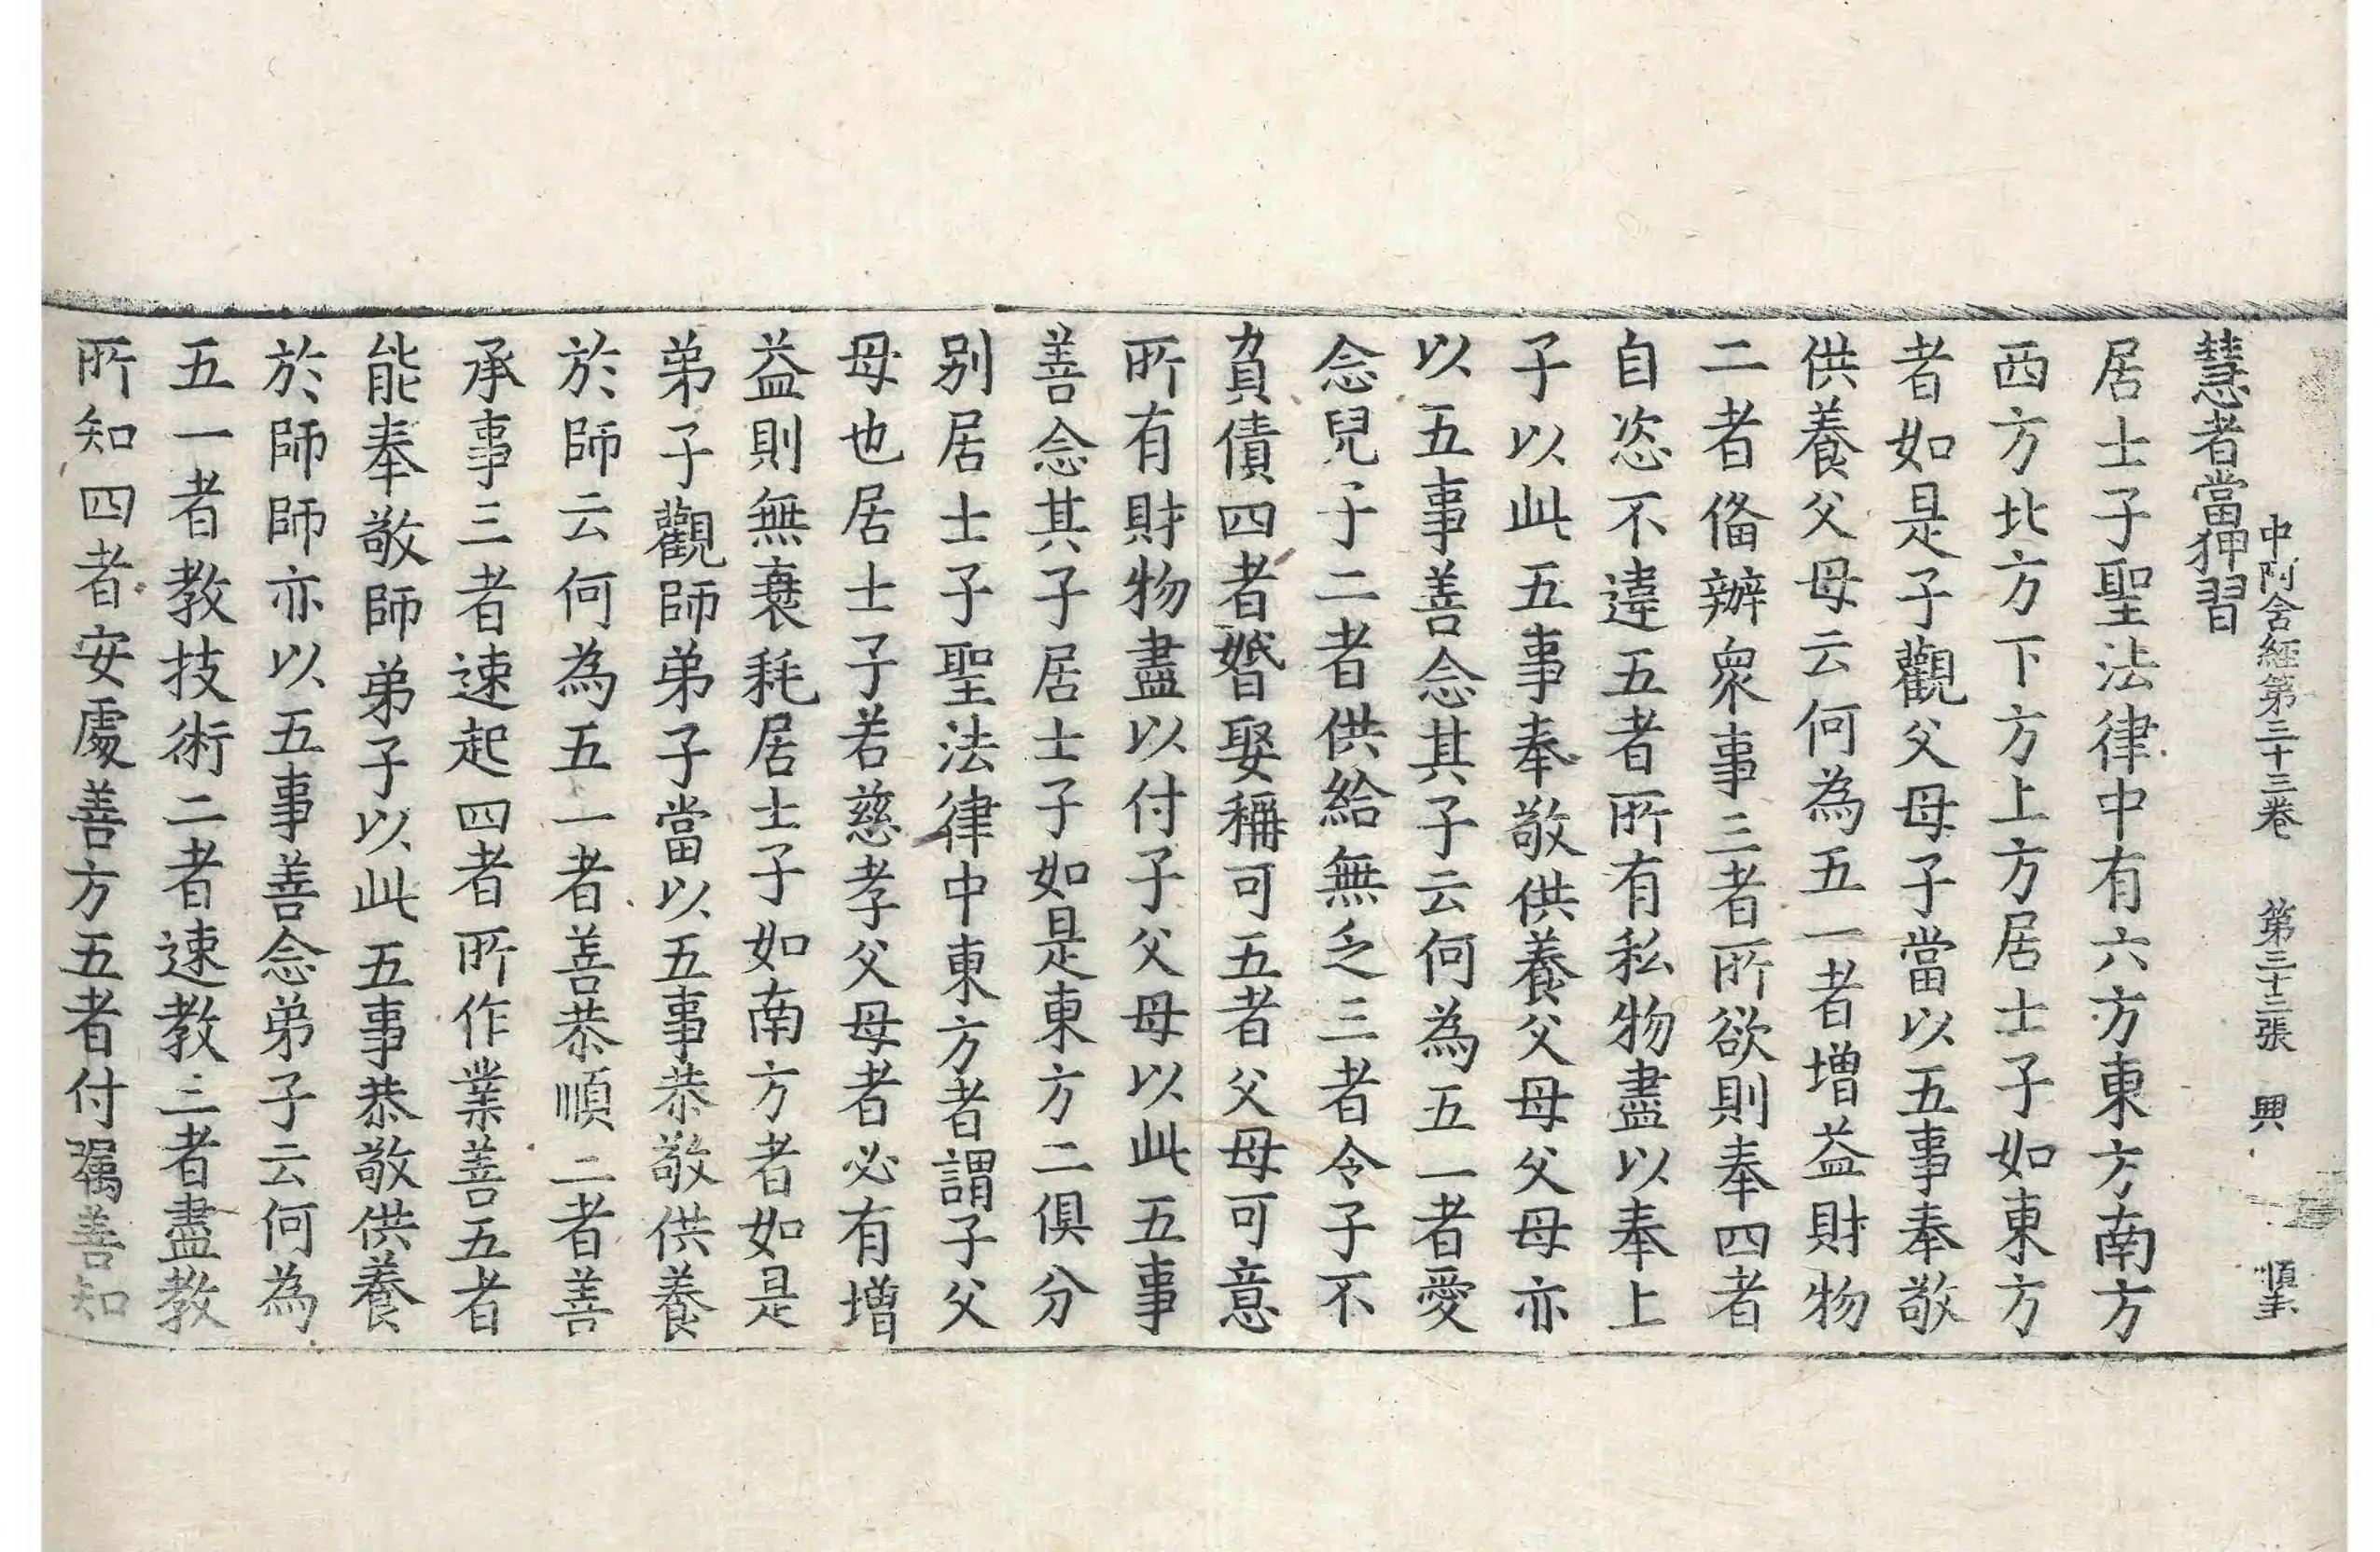 中阿含經第三十三卷 第三十二張 興
慧者當狎習
居士子聖法律中有六方東方南方
西方北方下方上方居士子如東方
者如是子觀父母子當以五事奉敬
供養父母云何為五一者增益財物
二者俻辦衆事三者所欲則奉四者
自恣不違五者所有私物盡以奉上
子以此五事奉敬供養父母父母亦
以五事善念其子云何為五一者愛
念兒子二者供給無乏三者令子不
負債四者婚娶稱可五者父母可意
所有財物盡以付子父母以此五事
善念其子居士子如是東方二俱分
別居士子聖法律中東方者謂子父
母也居士子若慈孝父母者必有增
益則無衰耗居士子如南方者如是
弟子觀師弟子當以五事恭敬供養
於師云何為五一者善恭順二者善
承事三者速起四者所作業善五者
能奉敬師弟子以此五事恭敬供養
於師師亦以五事善念弟子云何為
五一者教技術二者速教三者盡教
所知四者安處善方五者付囑善知